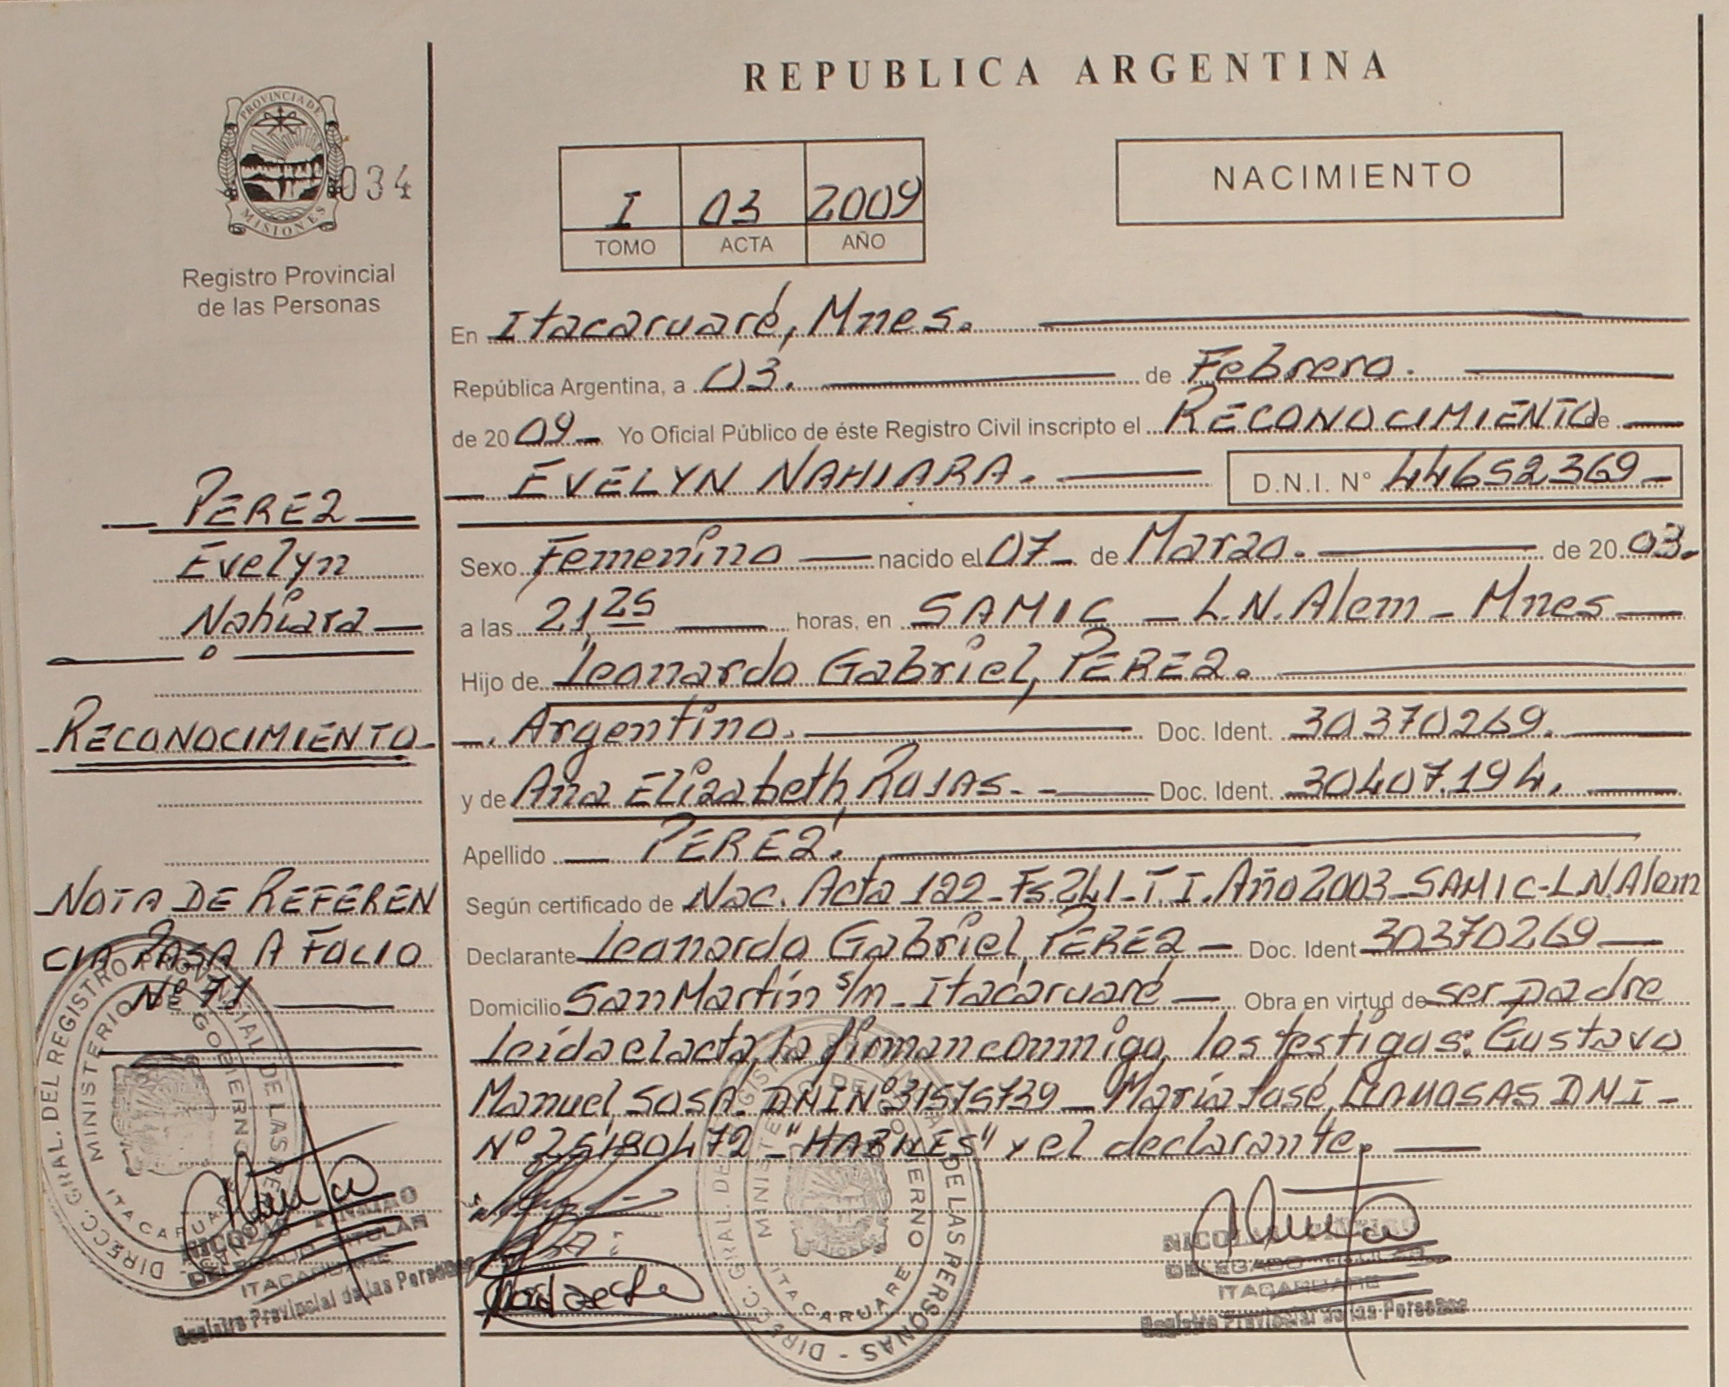 REPUBLICA ARGENTINA
PROVINCIA DE
MISIONES
034
Registro Provincial
de las Personas
I 03 2009
TOMO ACTA AÑO
NACIMIENTO
En Itacaruaré, Mnes.
República Argentina, a 03. de Febrero.
de 2009 Yo Oficial Público de éste Registro Civil inscripto el RECONOCIMIENTO de
EVELYN NAHIARA. D.N.I. N° 44652369
Sexo Femenino nacido el 07 de Marzo. de 2003.
a las 21,25 horas, en SAMIC - L.N. Alem - Mnes
Hijo de Leonardo Gabriel, PEREZ.
Argentino. Doc. Ident. 30370269.
y de Ana Elizabeth, ROJAS. Doc. Ident. 30407.194.
Apellido PEREZ.
Según certificado de Nac. Acta 122-Fs.241-T.I. Año 2003-SAMIC-L.N.Alem
Declarante Leonardo Gabriel, PEREZ Doc. Ident 30370269
Domicilio San Martín s/n - Itacaruaré Obra en virtud de ser padre
Leída el acta, la firman conmigo, los testigos: Gustavo
Manuel SOSA. DNI N° 31575739 - María José, DNI -
N° 25180472 "HABILES" y el declarante.
PEREZ
Evelyn
Nahiara
RECONOCIMIENTO
NOTA DE REFEREN
CIA PASA A FOLIO
N° 71
DIRECC. GRAL. DEL REGISTRO PROVINCIAL DE LAS PERSONAS
MINISTERIO DE GOBIERNO
ITACARUARE
DELEGADO TITULAR
ITACARUARE
Registro Provincial de las Personas
DIRECC. GRAL. DEL REGISTRO PROVINCIAL DE LAS PERSONAS
MINISTERIO DE GOBIERNO
ITACARUARE
DELEGADO TITULAR
ITACARUARE
Registro Provincial de las Personas